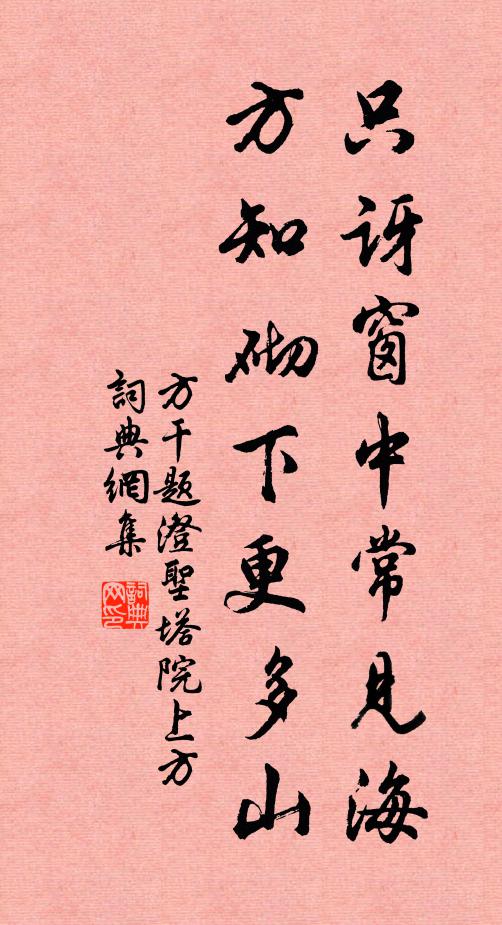 只訝窗中常見海
方知砌下更多山
方干题澄聖塔院上方
詞典網集
詞典网印